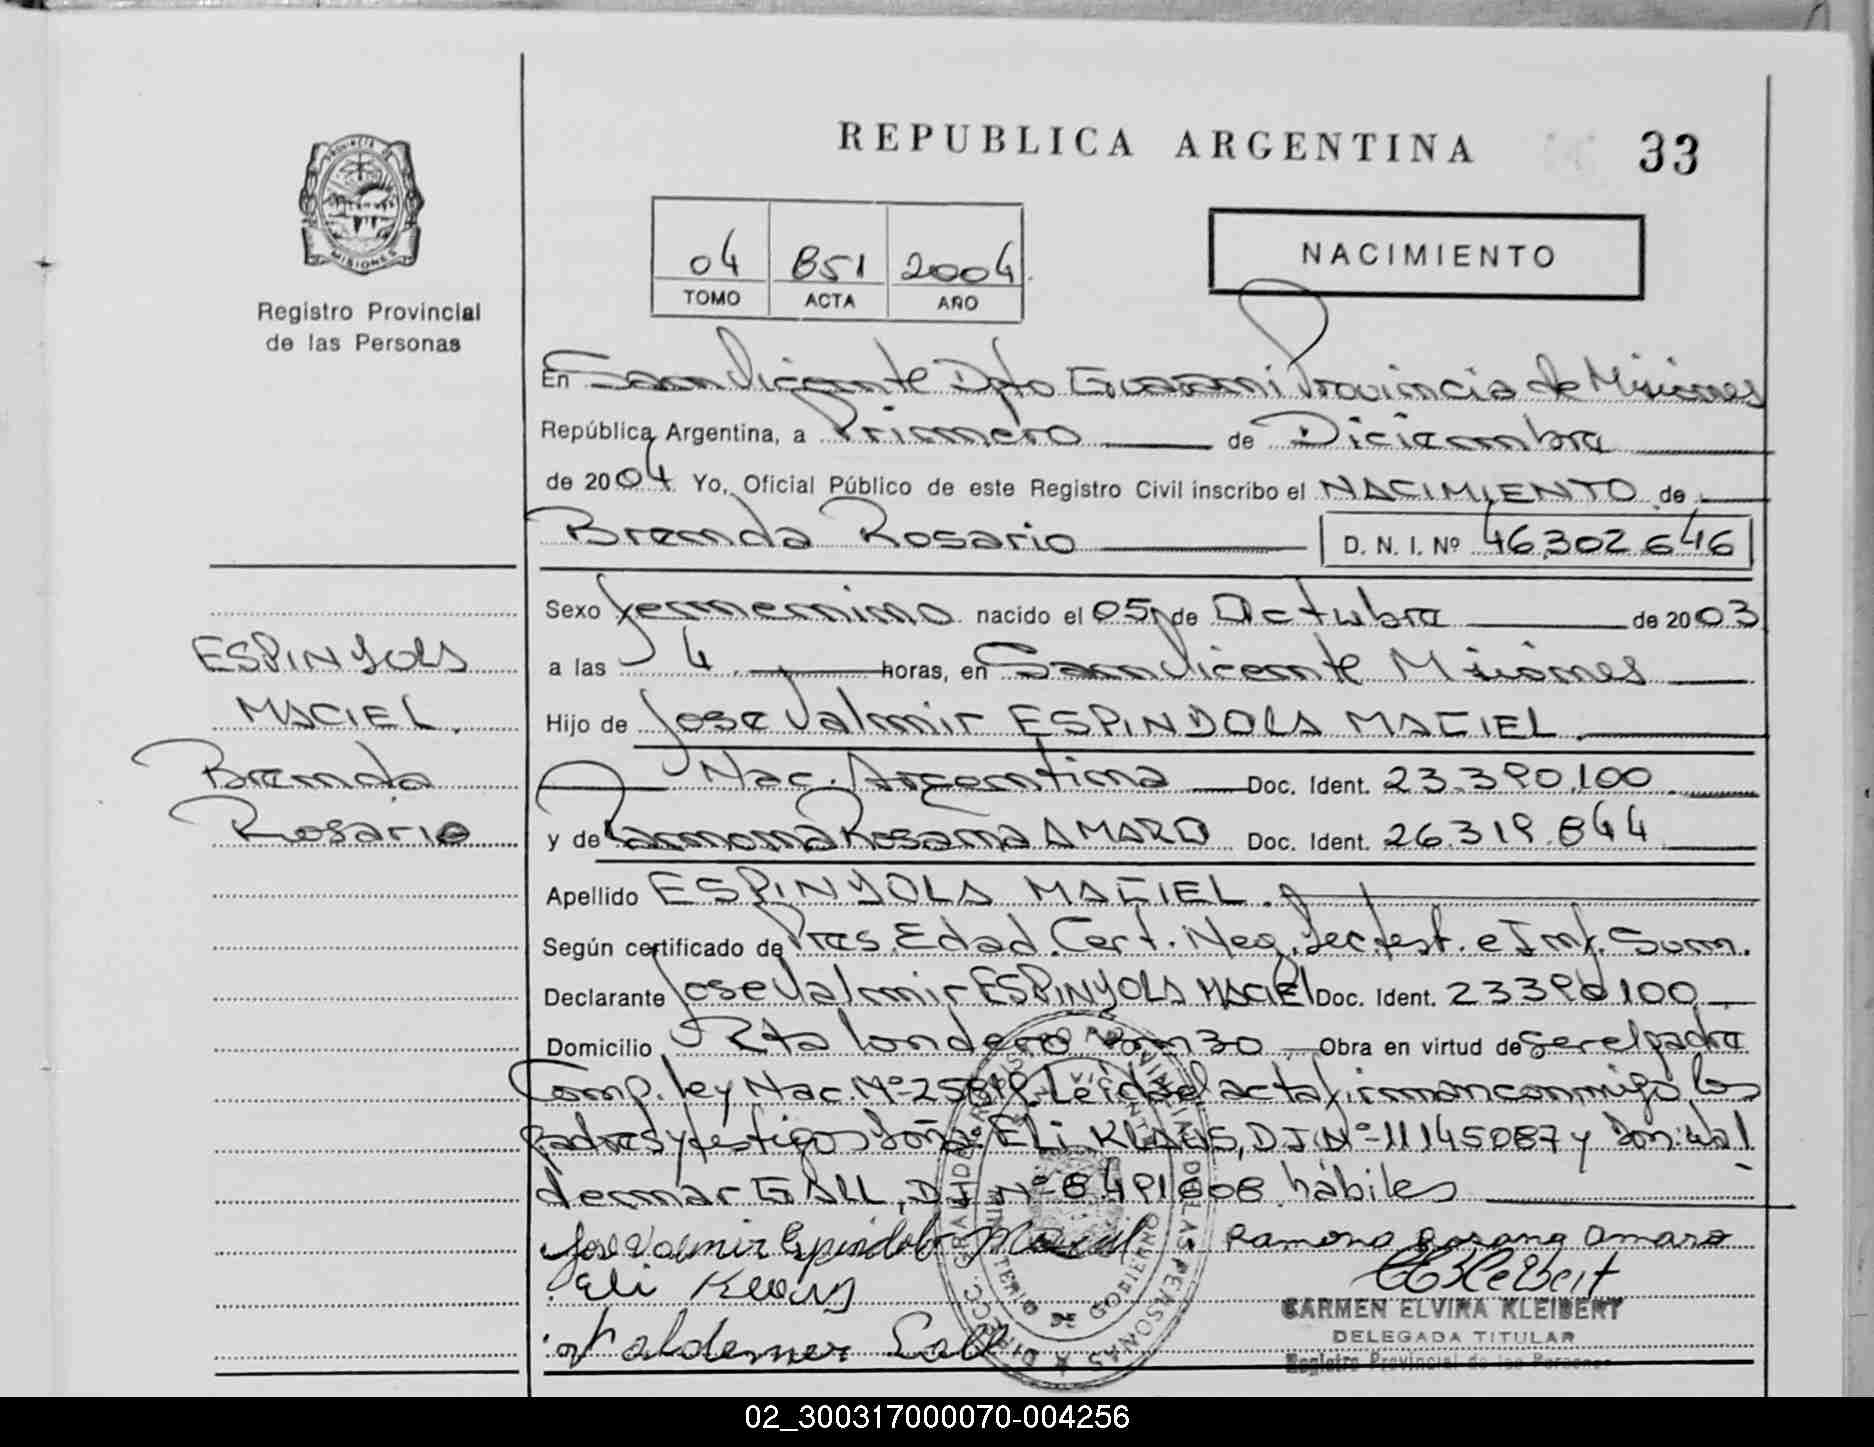 REPUBLICA ARGENTINA 33
PROVINCIA DE
MISIONES
Registro Provincial
de las Personas
04 851 2004
TOMO ACTA AÑO
NACIMIENTO
En San Vicente Dpto Guarani Provincia de Misiones
República Argentina, a Primero de Diciembre
de 2004 Yo, Oficial Público de este Registro Civil inscribo el NACIMIENTO de
Brenda Rosario D. N. I. Nº 46.302.646
Sexo femenino nacido el 05 de Octubre de 2003
a las 4 horas, en San Vicente Misiones
Hijo de Jose Valmir ESPINDOLA MACIEL
Nac. Argentina Doc. Ident. 23.390.100
y de Ramona Rosana AMARO Doc. Ident. 26.319.844
Apellido ESPINDOLA MACIEL.
Según certificado de Pres. Edad. Cert. Neg. Tec. test. e Inf. Sum.
Declarante Jose Valmir ESPINDOLA MACIEL Doc. Ident. 23390100
Domicilio Rta Londero Km 30 Obra en virtud de ser el padre
Comp. ley Nac. Nº 25819. Leida el acta firman conmigo los
padres y testigos doña Eli KLAUS, DI Nº 11145087 y don Wal
demar GALL, DI Nº 8491808 hábiles
ESPINDOLA
MACIEL.
Brenda
Rosario
Jose Valmir Espindola Maciel Ramona Rosana Amaro
Eli Klaus
Valdemar Gall
CARMEN ELVIRA KLEIBERT
DELEGADA TITULAR
Registro Provincial de las Personas
02_300317000070-004256